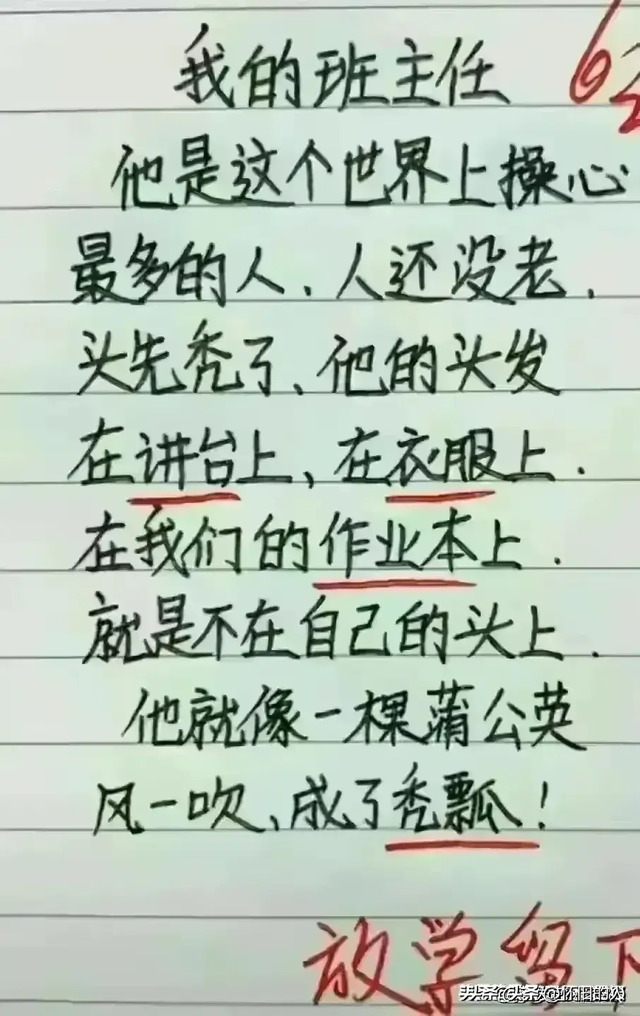 我的班主任
6
他是这个世界上操心
最多的人、人还没老.
头先秃了、他的头发
在讲台上、在衣服上.
在我们的作业本上.
就是不在自己的头上.
他就像一棵蒲公英
风一吹、成了秃瓢!
放学留下
头条